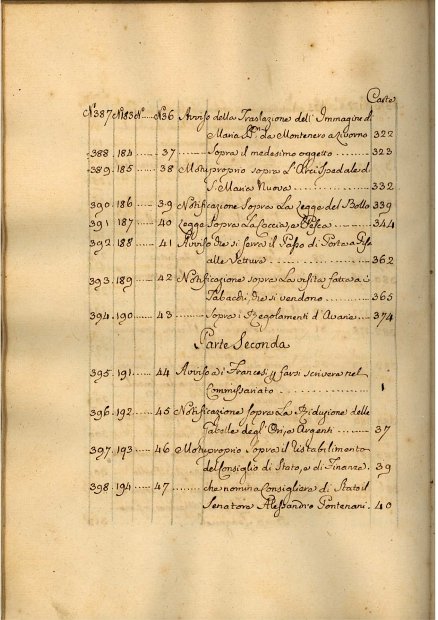 Carte
N.387 N.183 N.36 Avviso della Traslazione dell'Immagine di
Maria SS. da Montenero a Livorno 322
388 184 37 Sopra il medesimo oggetto 323
389 185 38 Motuproprio sopra L'Arcispedale di
S. Maria Nuova 332
390 186 39 Notificazione sopra La Legge del Bollo 339
391 187 40 Legge sopra La Caccia, e Pesca 344
392 188 41 Avviso che si serra il Passo di Porta a
alle Vetture 362
393 189 42 Notificazione sopra La visita fatta a i
Tabacchi, che si vendono 365
394 190 43 Sopra i Regolamenti d'Avarie 374
Parte Seconda
395 191 44 Avviso a i Francesi p farsi scrivere nel
Commissariato 1
396 192 45 Notificazione sopra La Riduzione delle
Tabelle degl'Ori, e Argenti 37
397 193 46 Motuproprio Sopra il ristabilimento
del Consiglio di Stato, e di Finanze 39
398 194 47 che nomina Consigliere di Stato il
Senatore Alessandro Pontenani 40